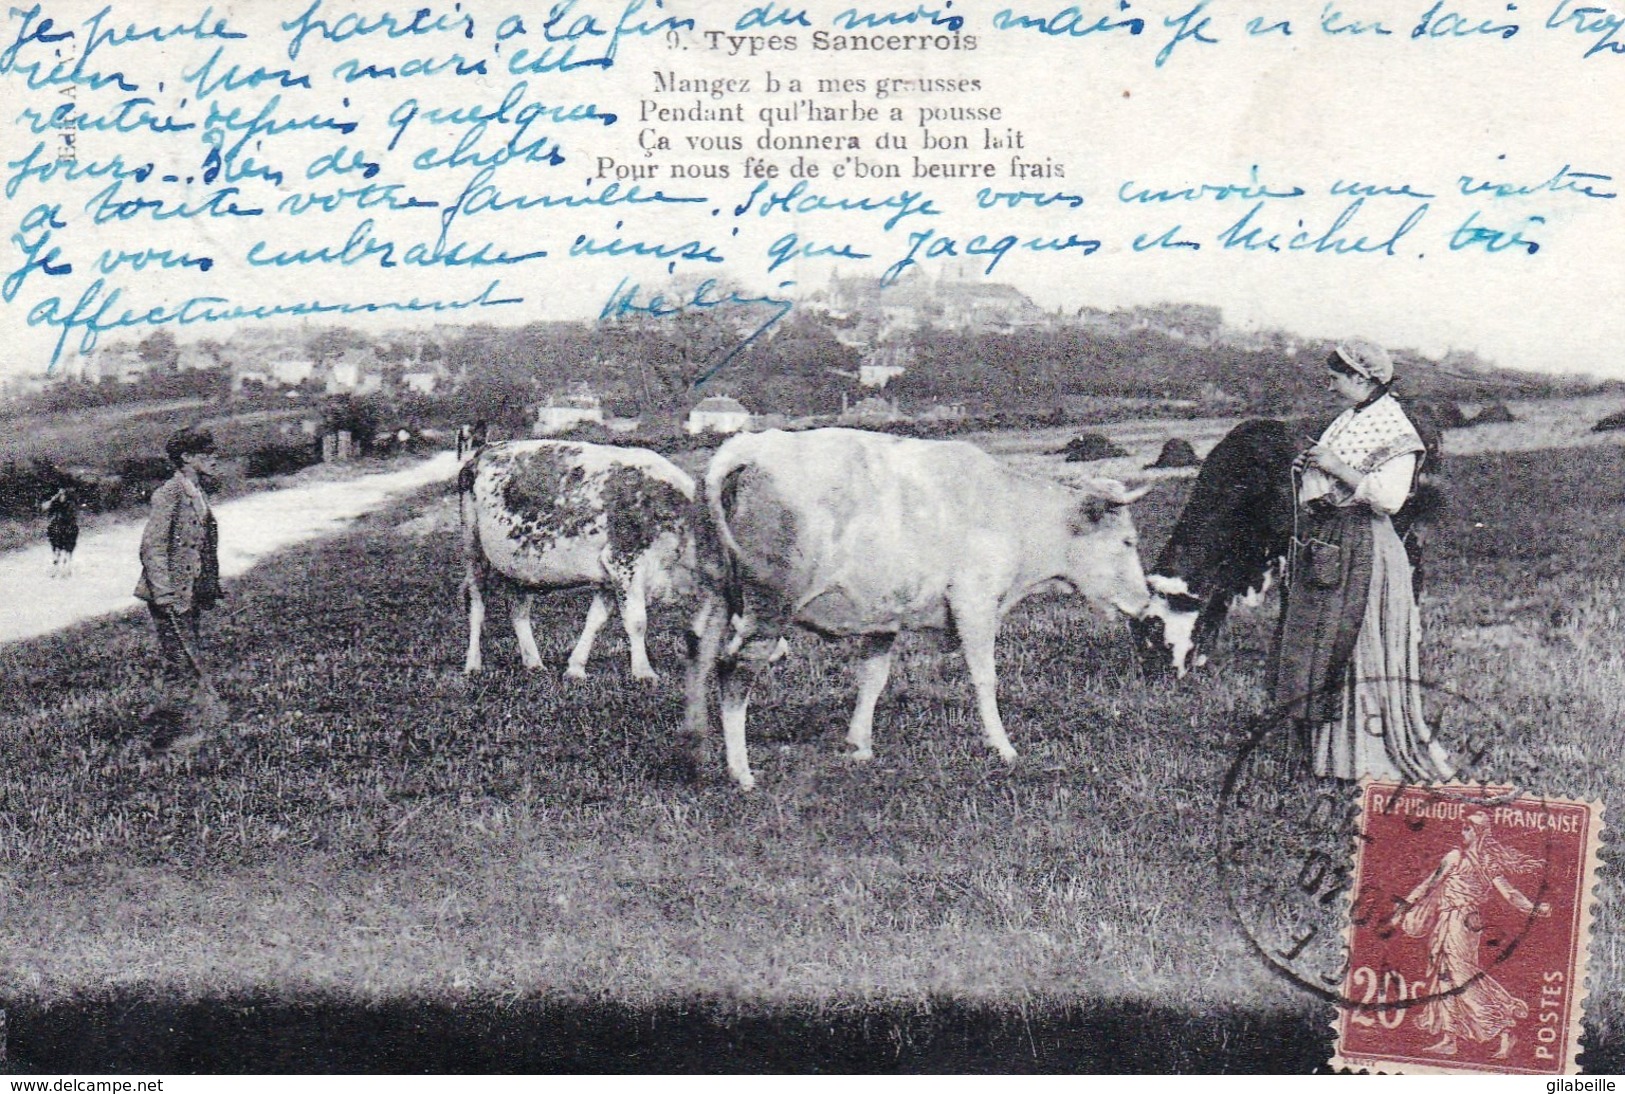 Je pense partir a la fin du mois mais je n'en sais trop
rien. Mon mari est
rentré depuis quelques
jours. Bien des choses
a toute votre famille. Solange vous envoie une risette
Je vous embrasse ainsi que Jacques et Michel. très
affectueusement
9. Types Sancerrois
Mangez b a mes grousses
Pendant qu l'harbe a pousse
Ça vous donnera du bon lait
Pour nous fée de c'bon beurre frais
REPUBLIQUE FRANÇAISE
20c
POSTES
www.delcampe.net
gilabeille